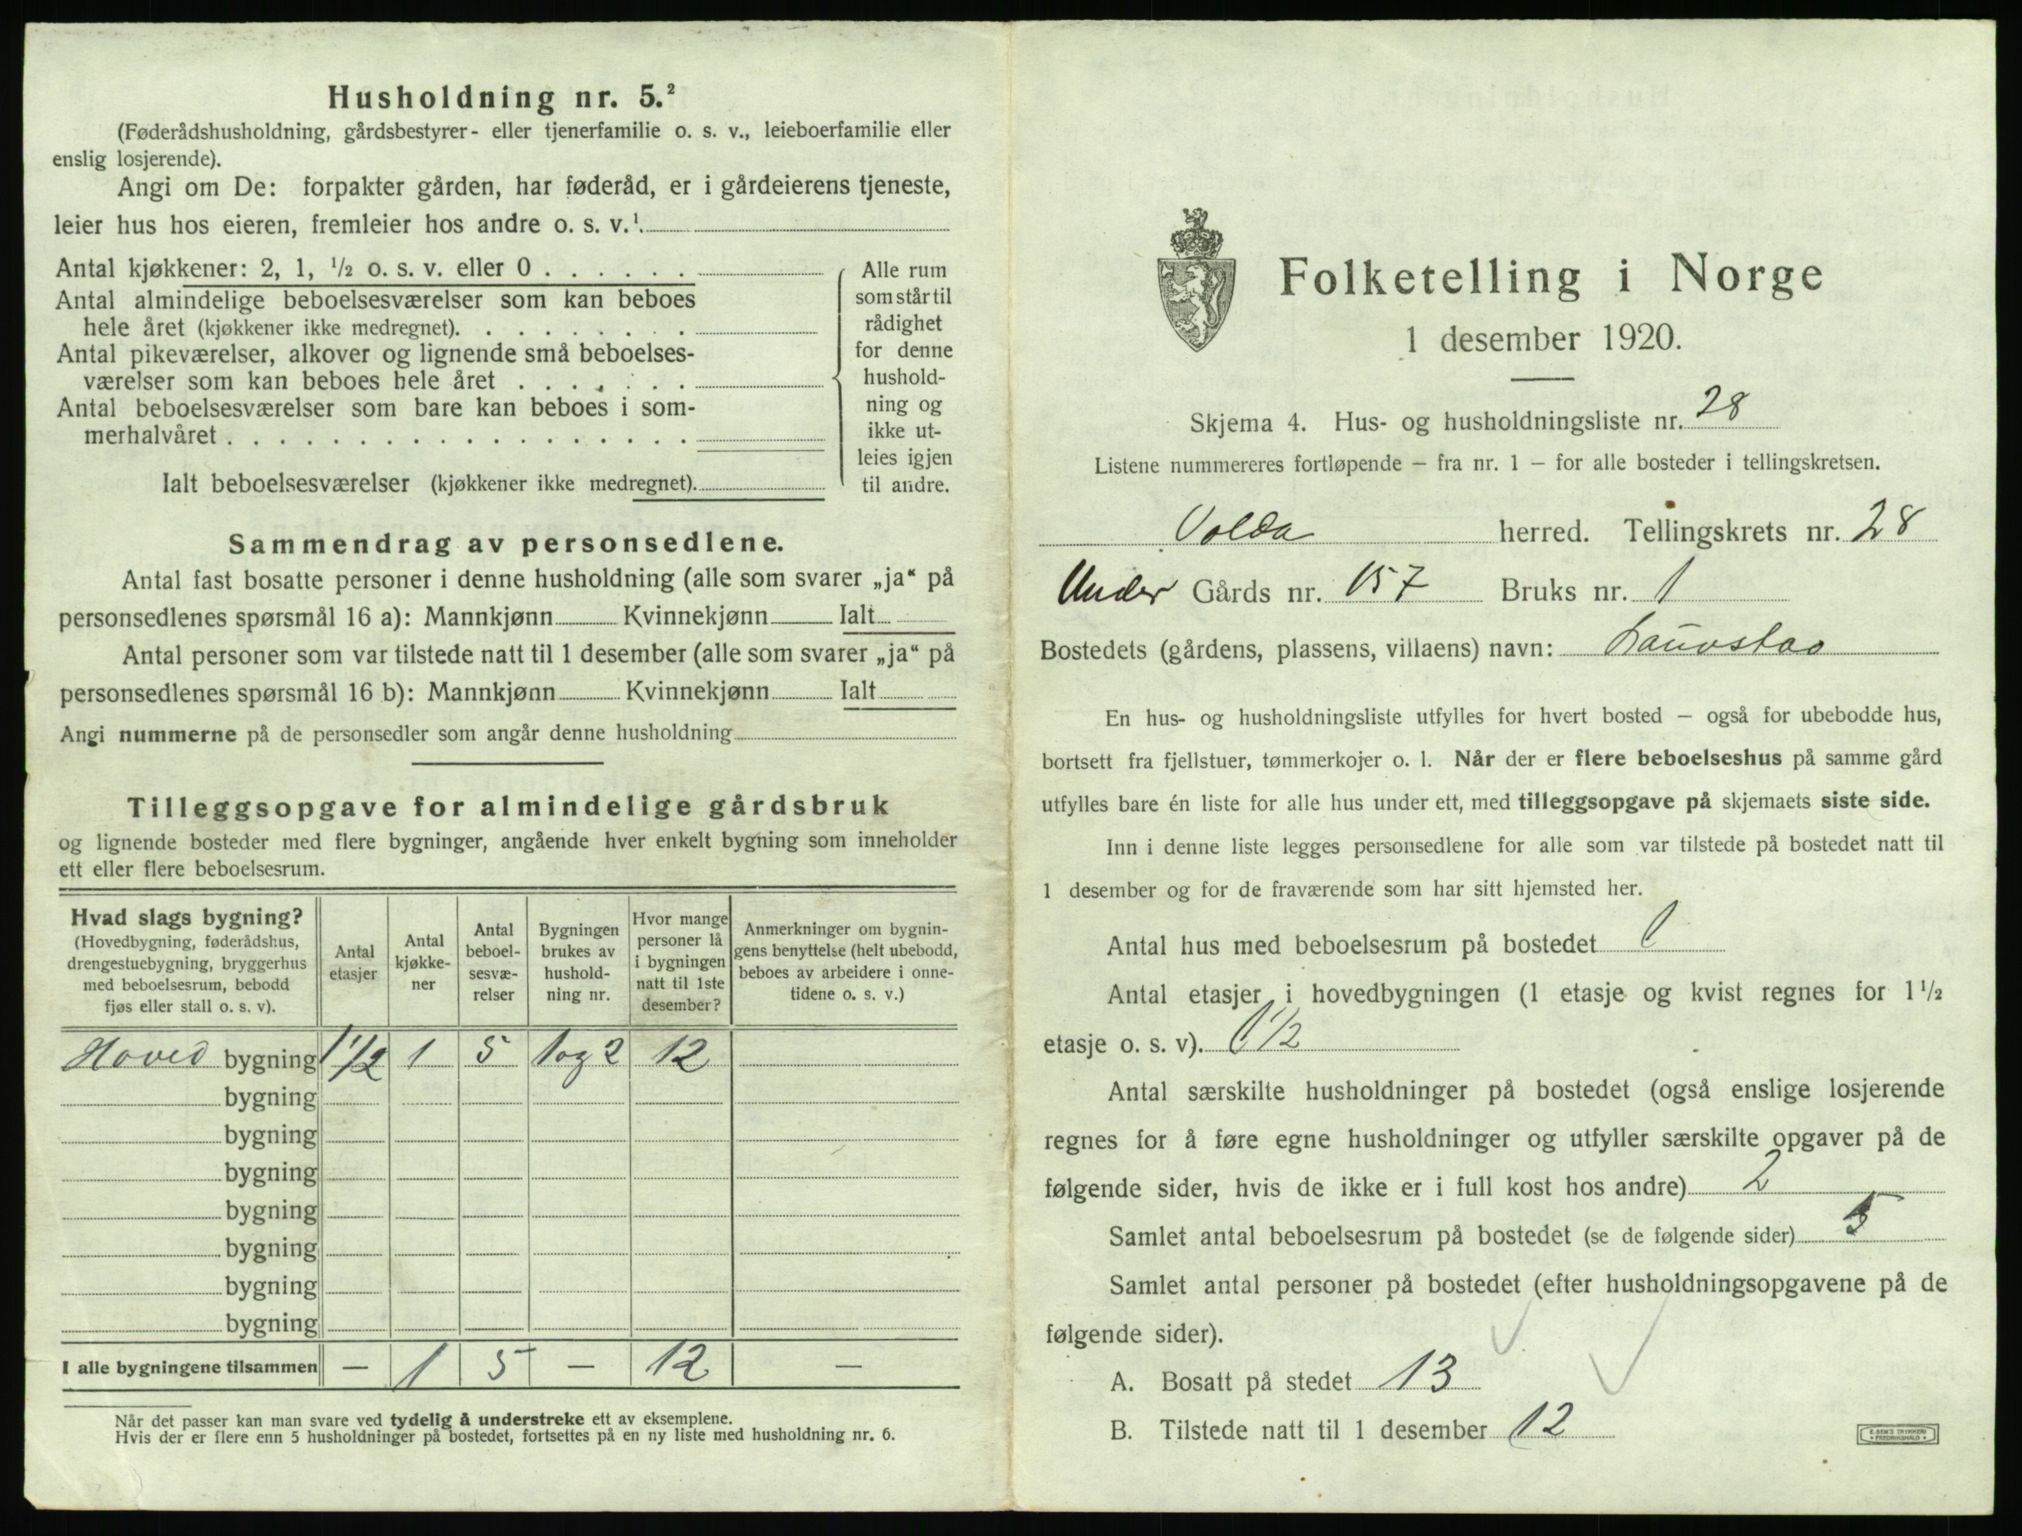 Husholdning nr. 5.²
(Føderådshusholdning, gårdsbestyrer- eller tjenerfamilie o. s. v., leieboerfamilie eller
enslig losjerende).
Angi om De: forpakter gården, har føderåd, er i gårdeierens tjeneste,
leier hus hos eieren, fremleier hos andre o. s. v.¹
Antal kjøkkener: 2, 1, ½ o. s. v. eller 0
Antal almindelige beboelsesværelser som kan beboes
hele året (kjøkkener ikke medregnet).
Antal pikeværelser, alkover og lignende små beboelses-
værelser som kan beboes hele året
Antal beboelsesværelser som bare kan beboes i som-
merhalvåret
Ialt beboelsesværelser (kjøkkener ikke medregnet).
Alle rum
som står til
rådighet
for denne
hushold-
ning og
ikke ut-
leies igjen
til andre.
Sammendrag av personsedlene.
Antal fast bosatte personer i denne husholdning (alle som svarer „ja“ på
personsedlenes spørsmål 16 a): Mannkjønn Kvinnekjønn Ialt
Antal personer som var tilstede natt til 1 desember (alle som svarer „ja“ på
personsedlenes spørsmål 16 b): Mannkjønn Kvinnekjønn Ialt
Angi nummerne på de personsedler som angår denne husholdning
Tilleggsopgave for almindelige gårdsbruk
og lignende bosteder med flere bygninger, angående hver enkelt bygning som inneholder
ett eller flere beboelsesrum.
Hvad slags bygning?
(Hovedbygning, føderådshus,
drengestuebygning, bryggerhus
med beboelsesrum, bebodd
fjøs eller stall o. s. v).
Antal
etasjer
Antal
kjøkke-
ner
Antal
beboel-
sesvæ-
relser
Bygningen
brukes av
hushold-
ning nr.
Hvor mange
personer lå
i bygningen
natt til 1ste
desember?
Anmerkninger om bygnin-
gens benyttelse (helt ubebodd,
beboes av arbeidere i onne-
tidene o. s. v.)
Hoved bygning 1½ 1 5 1 og 2 12
bygning
bygning
bygning
bygning
bygning
bygning
bygning
I alle bygningene tilsammen — 1 5 — 12 —
Når det passer kan man svare ved tydelig å understreke ett av eksemplene.
Hvis der er flere enn 5 husholdninger på bostedet, fortsettes på en ny liste med husholdning nr. 6.
Folketelling i Norge
1 desember 1920.
Skjema 4. Hus- og husholdningsliste nr. 28
Listene nummereres fortløpende – fra nr. 1 – for alle bosteder i tellingskretsen.
Volda herred. Tellingskrets nr. 28
Under Gårds nr. 157 Bruks nr. 1
Bostedets (gårdens, plassens, villaens) navn: Lauvstad
En hus- og husholdningsliste utfylles for hvert bosted – også for ubebodde hus,
bortsett fra fjellstuer, tømmerkojer o. l. Når der er flere beboelseshus på samme gård
utfylles bare én liste for alle hus under ett, med tilleggsopgave på skjemaets siste side.
Inn i denne liste legges personsedlene for alle som var tilstede på bostedet natt til
1 desember og for de fraværende som har sitt hjemsted her.
Antal hus med beboelsesrum på bostedet 1
Antal etasjer i hovedbygningen (1 etasje og kvist regnes for 1½
etasje o. s. v). 1½
Antal særskilte husholdninger på bostedet (også enslige losjerende
regnes for å føre egne husholdninger og utfyller særskilte opgaver på de
følgende sider, hvis de ikke er i full kost hos andre) 2
Samlet antal beboelsesrum på bostedet (se de følgende sider) 5
Samlet antal personer på bostedet (efter husholdningsopgavene på de
følgende sider).
A. Bosatt på stedet 13
B. Tilstede natt til 1 desember 12
E. SEM'S TRYKKERI
FREDRIKSHALD